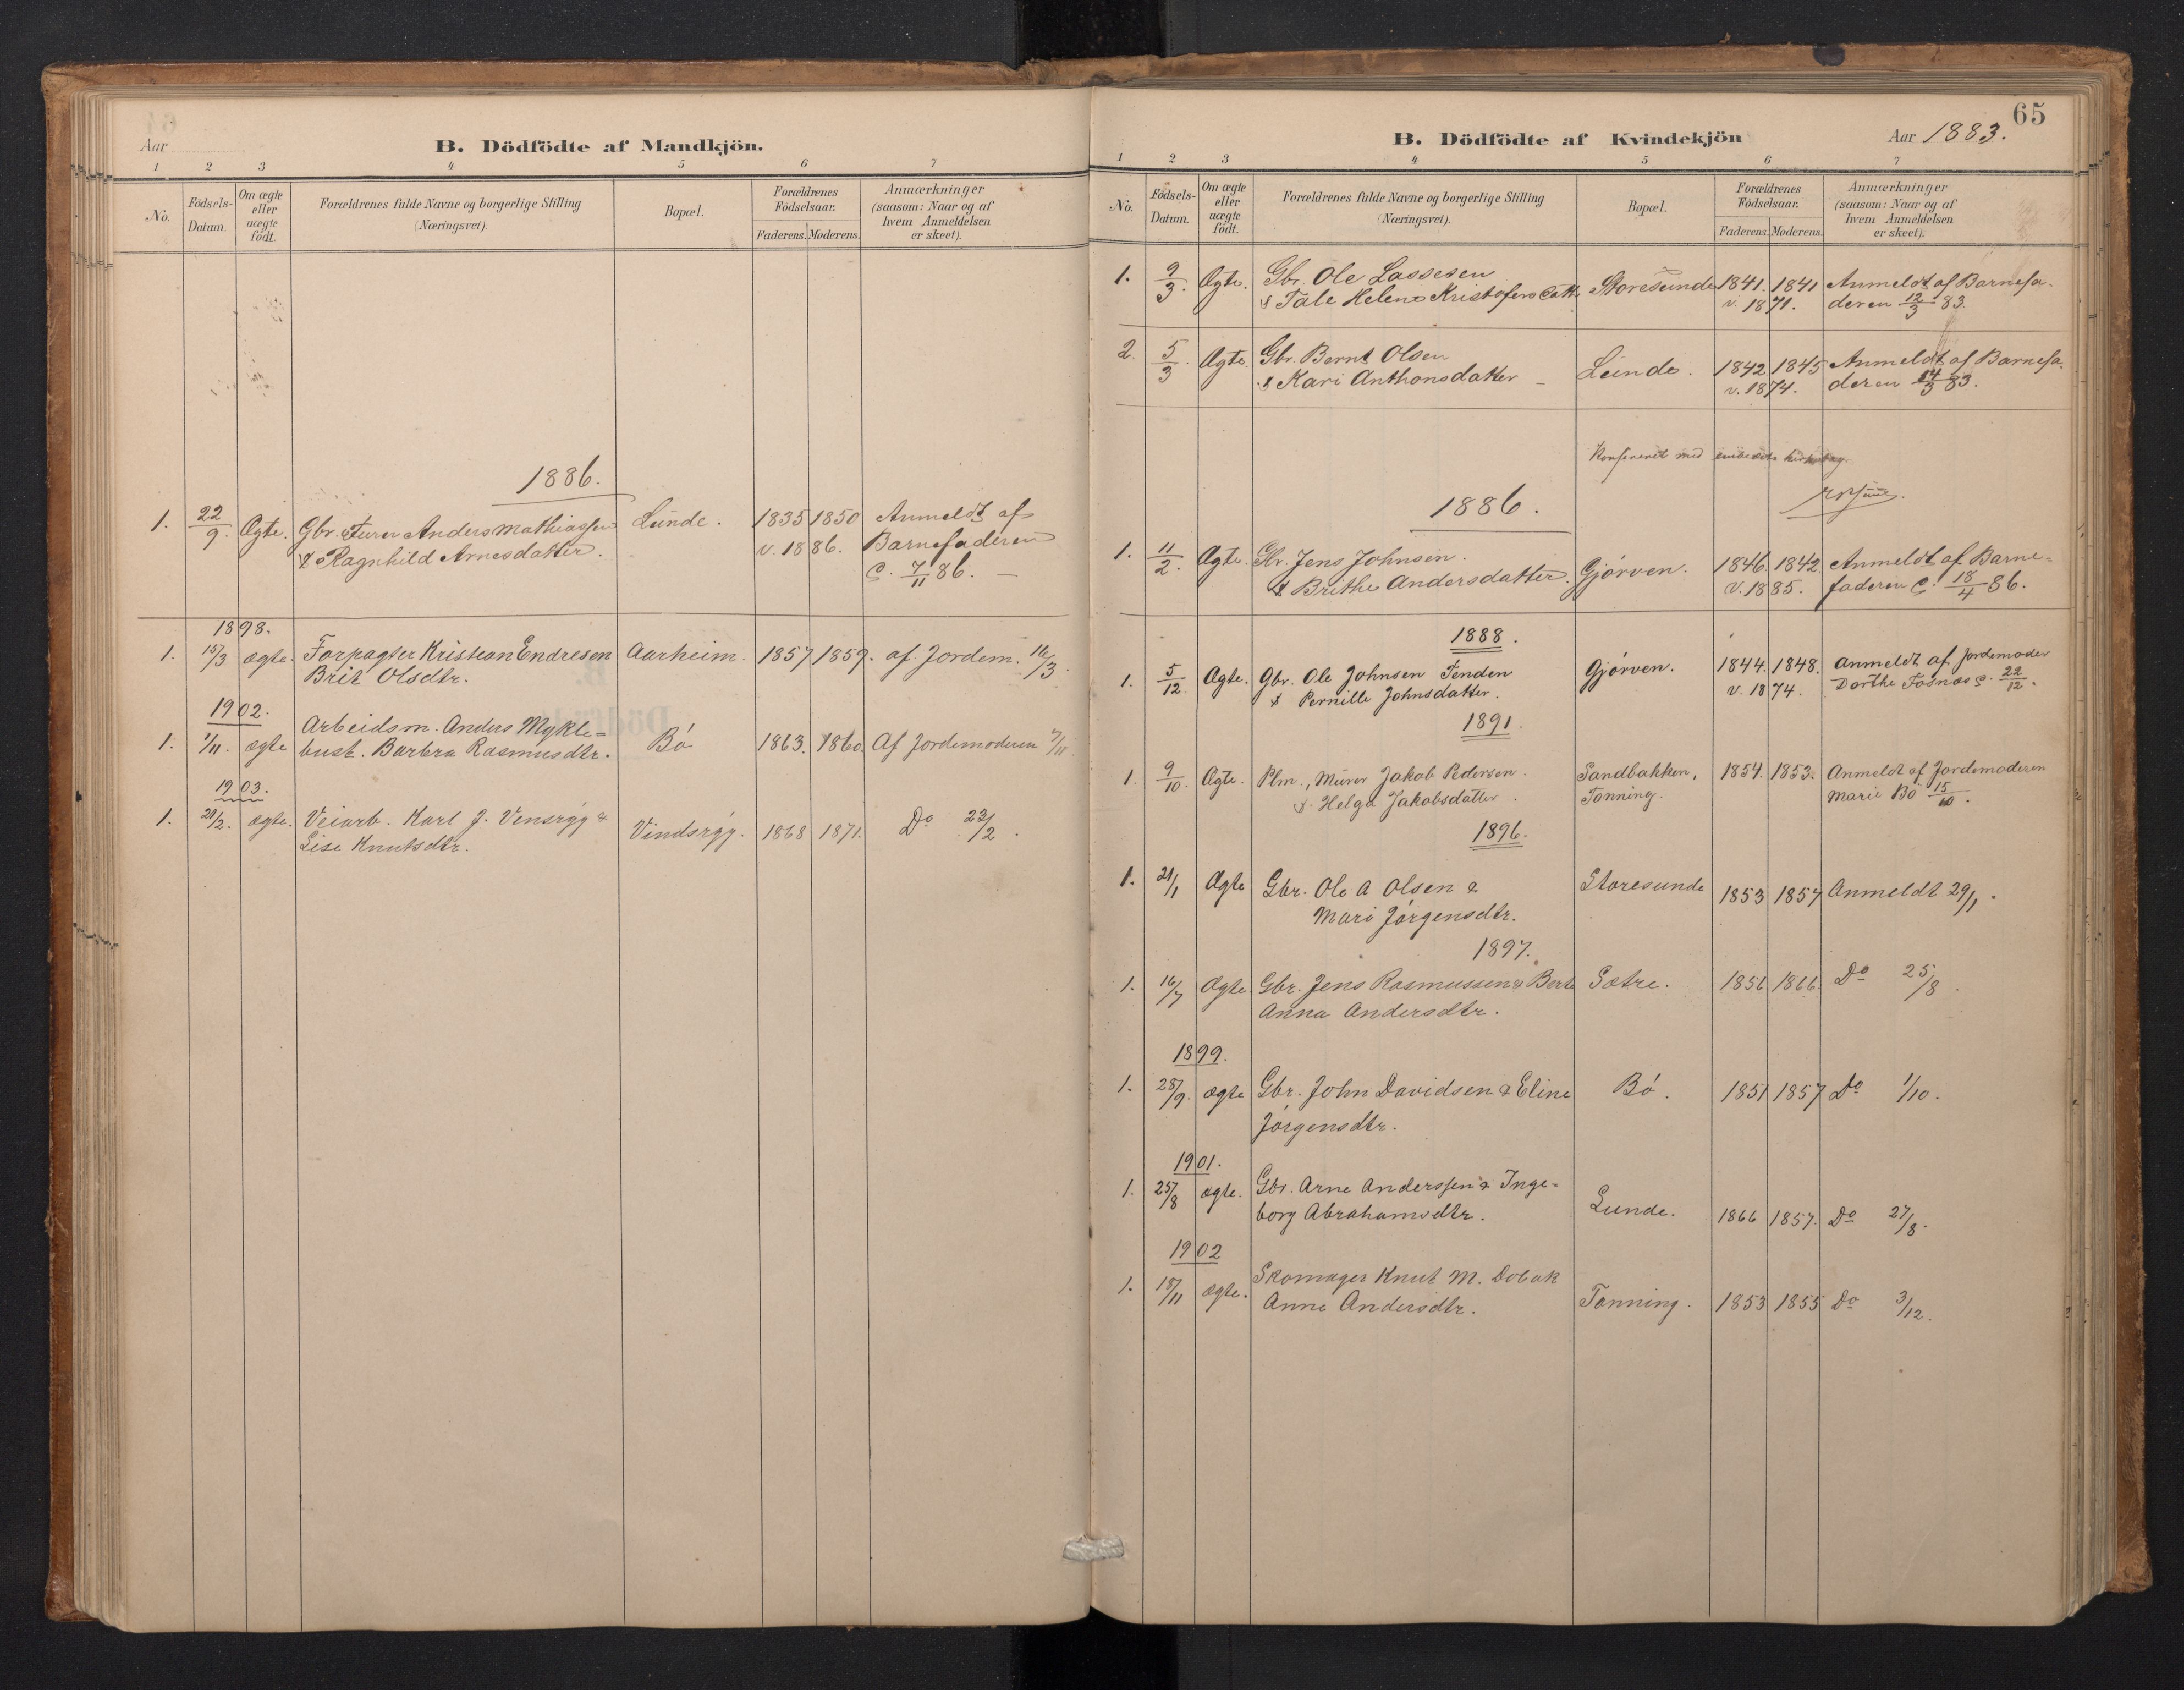 Aar
B. Dödfödte af Mandkjön.
1 2 3 4 5 6 7
No. Födsels-Datum. Om ægte eller uægte födt. Forældrenes fulde Navne og borgerlige Stilling (Næringsvei). Bopæl. Forældrenes Födselsaar. Faderens. Moderens. Anmærkninger (saasom: Naar og af hvem Anmeldelsen er skeet).
1886.
1. 22/9. Ægte. Gbr. Anders Mathiassen Lunde. 1835 1850 Anmeldt af
& Ragnhild Arnesdatter. v. 1886. Barnefaderen
7/11 86. –
1898.
1. 15/3 ægte. Forpagter Kristian Endresen Aarheim. 1857 1859. af Jordem. 16/3.
Brit Olsdtr.
1902.
Arbeidsm. Anders Mykle=
1. 1/11. ægte bust. Barbra Rasmusdtr. Bó 1863. 1860. Af Jordemoderen 7/11.
1903.
1. 21/2. ægte. Veiarb. Karl J. Vensryg & Vindsryg. 1868 1871. Do 23/2.
Lise Knutsdtr.
65
B. Dödfödte af Kvindekjön
Aar 1883.
1 2 3 4 5 6 7
No. Födsels-Datum. Om ægte eller uægte födt. Forældrenes fulde Navne og borgerlige Stilling (Næringsvei). Bopæl. Forældrenes Födselsaar. Faderens. Moderens. Anmærkninger (saasom: Naar og af hvem Anmeldelsen er skeet).
1. 9/3. Ægte. Gbr. Ole Lassesen Storesunde 1841. 1841 Anmeldt af Barnefa-
& Tale Helene Kristofersdatt. v. 1871. deren 12/3 83.
2. 5/3. Ægte. Gbr. Bernt Olsen Lunde. 1842 1845 Anmeldt af Barnefa-
& Kari Anthonsdatter – v. 1874. deren 14/3 83.
Konfereret med
1886.
1. 11/2. Ægte. Gbr. Jens Johnsen. Gjórven. 1846. 1842 Anmeldt af Barne=
& Brithe Andersdatter. v. 1885. faderen 18/4 86.
1888.
1. 5/12. Ægte. Gbr. Ole Johnsen Tenden Gjórven. 1844. 1848. Anmeldt af Jordemoder
& Pernille Johnsdatter. v. 1874. Dorthe Fosnæs 22/12.
1891.
1. 9/10. Ægte. Plm., Murer Jakob Pedersen. Sandbakken, 1854. 1853. Anmeldt af Jordemoderen
& Helga Jakobsdatter. Tonning. Marie Bó 15/10.
1896.
1. 21/1 Ægte Gbr. Ole A Olsen & Storesunde 1853 1857 Anmeldt 29/1.
Mari Jórgensdtr.
1897.
1. 16/7 Ægte. Gbr. Jens Rasmussen & Berte Sætre. 1856 1866. Do 25/8.
Anna Andersdtr.
1899.
1. 28/9. ægte Gbr. John Davidsen & Eline Bó. 1851 1857 Do 1/10.
Jórgensdtr.
1901.
1. 25/8 ægte. Gbr. Arne Anderssen & Inge-
borg Abrahamsdtr. Lunde. 1866 1857. Do 27/8.
1902
1. 18/11 ægte. Skomager Knut M. Dobak
Anne Andersdtr. Tonning. 1853 1855 Do 3/12.